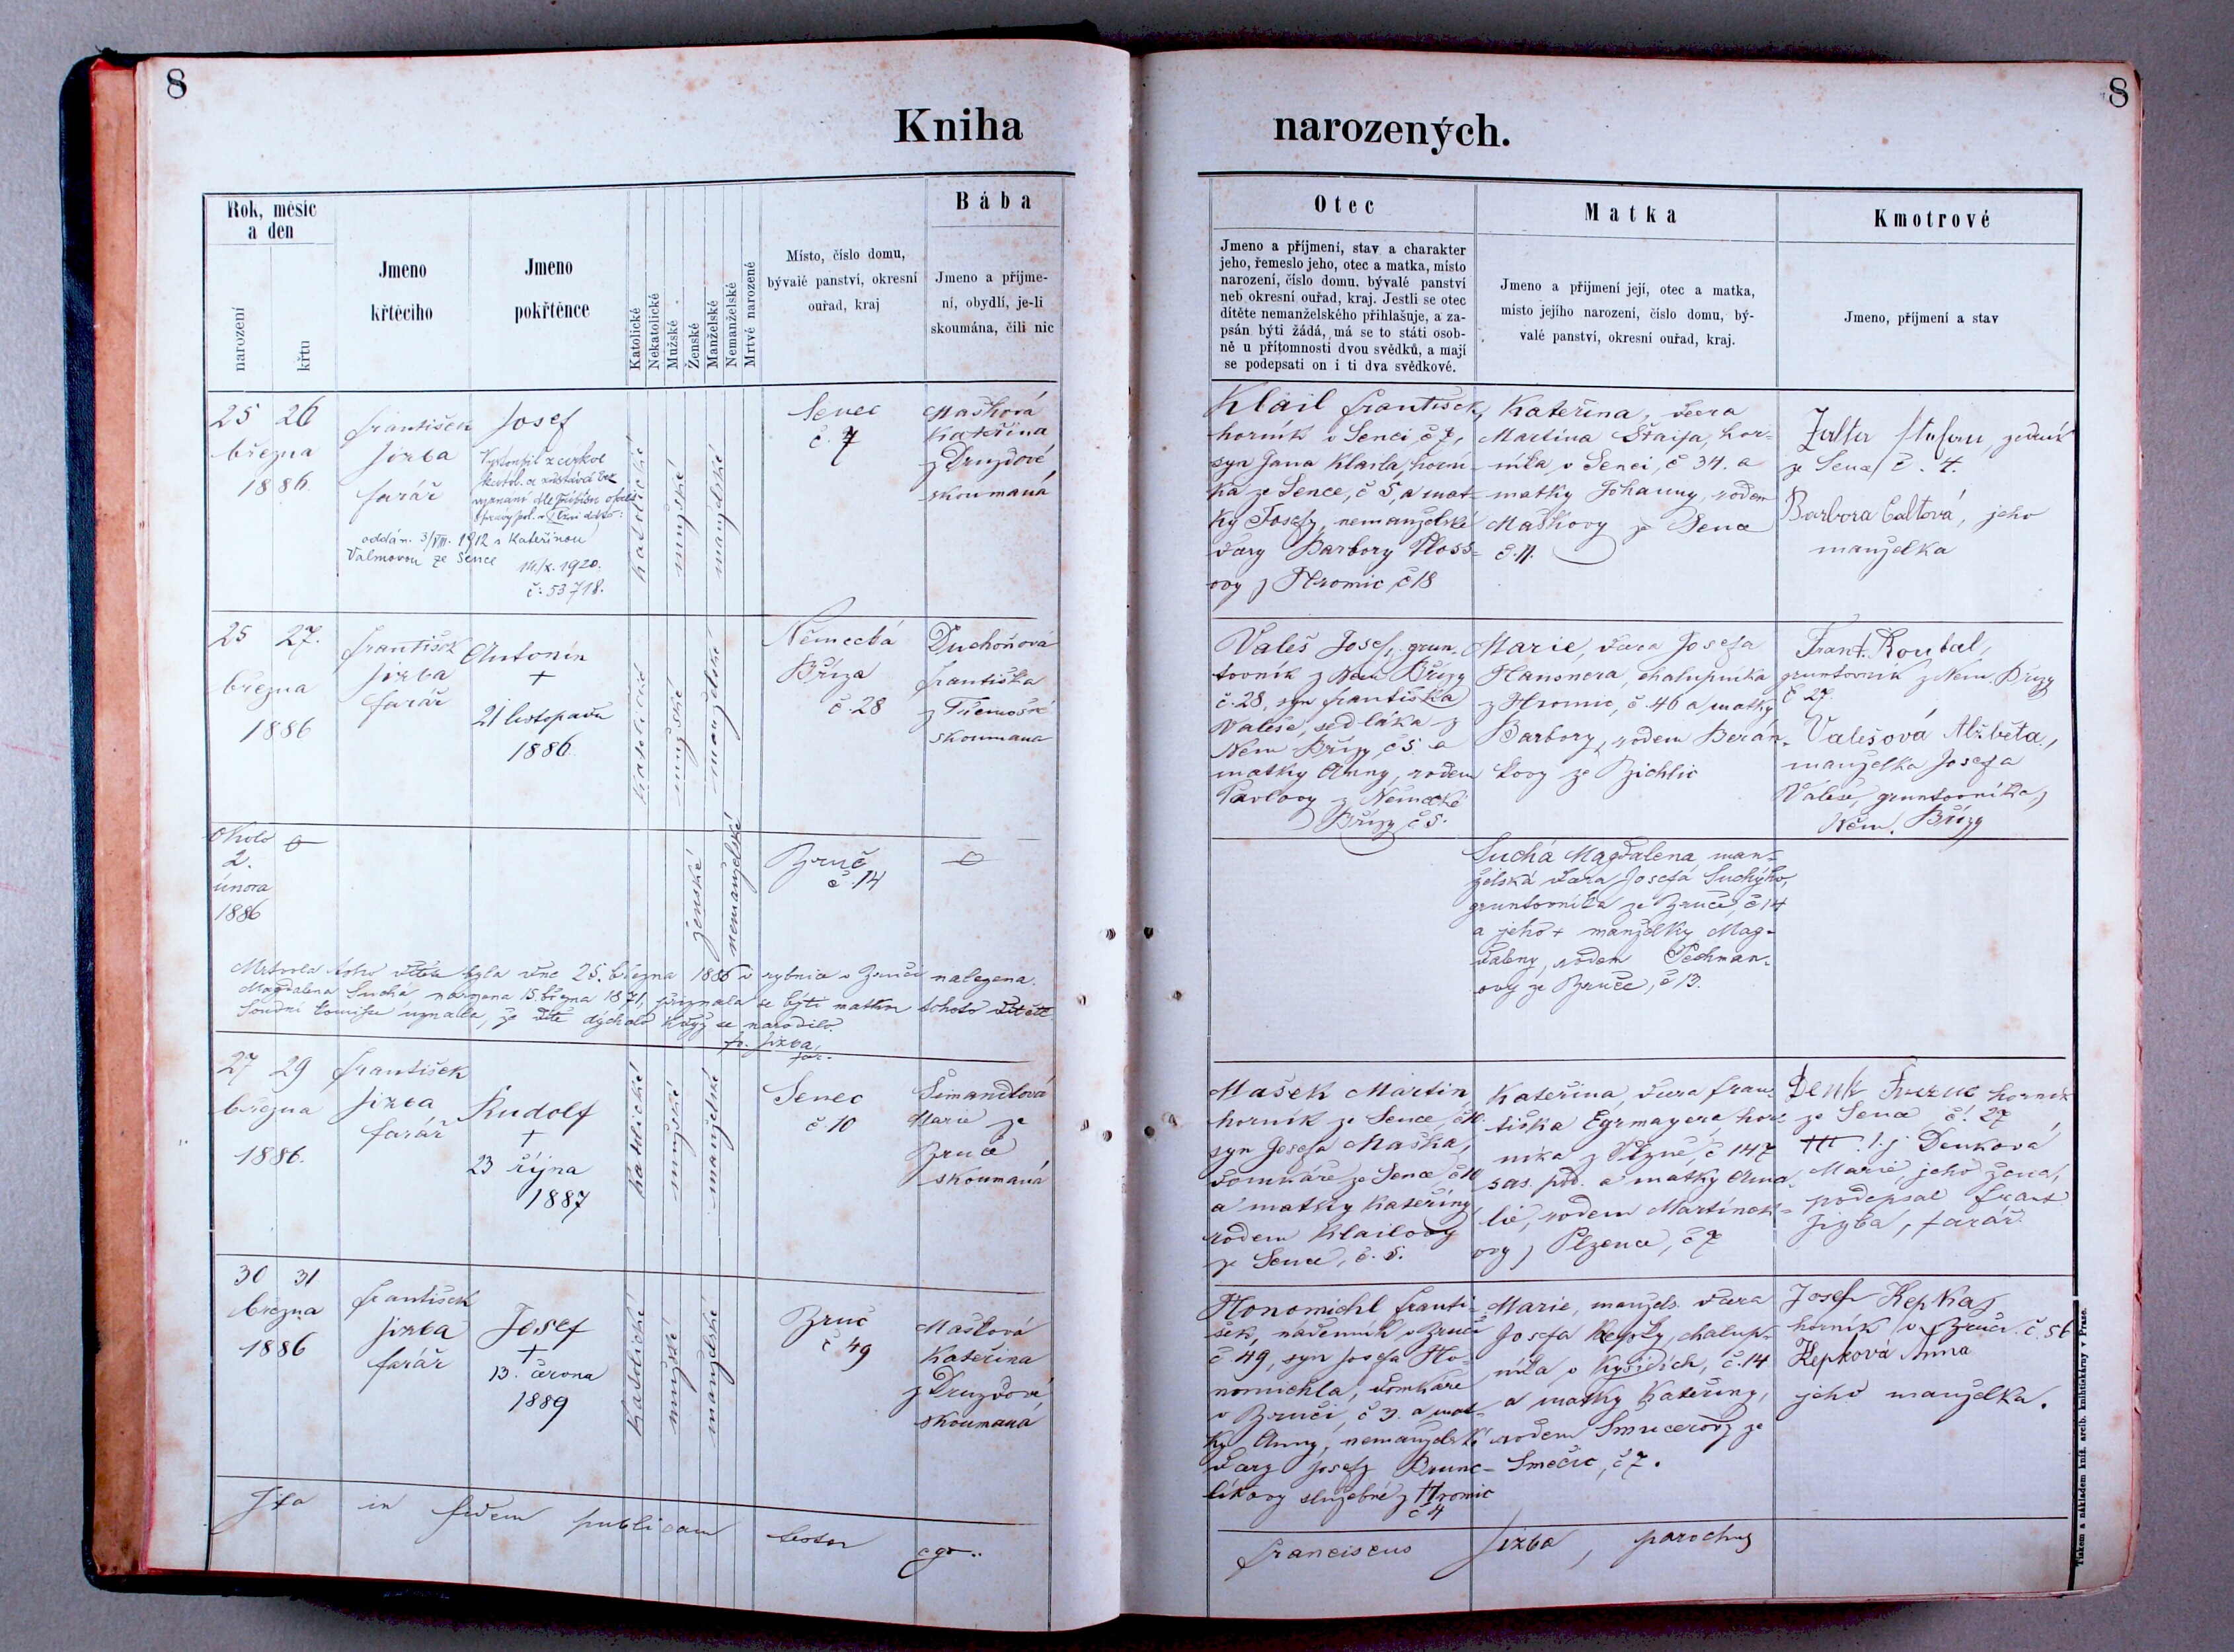 8
8
Kniha
narozených.
Rok, měsíc
a den
narození
křtu
Jmeno
křtěcího
Jmeno
pokřtěnce
Katolické
Nekatolické
Mužské
Ženské
Manželské
Nemanželské
Mrtvé narozené
Místo, číslo domu,
bývalé panství, okresní
ouřad, kraj
Bába
Jmeno a příjme-
ní, obydlí, je-li
skoumána, čili nic
Otec
Jmeno a příjmení, stav a charakter
jeho, řemeslo jeho, otec a matka, místo
narození, číslo domu, bývalé panství
neb okresní ouřad, kraj. Jestli se otec
dítěte nemanželského přihlašuje, a za-
psán býti žádá, má se to státi osob-
ně u přítomnosti dvou svědků, a mají
se podepsati on i ti dva svědkové.
Matka
Jmeno a přijmení její, otec a matka,
místo jejího narození, číslo domu, bý-
valé panství, okresní ouřad, kraj.
Kmotrové
Jmeno, příjmení a stav
25 26
března
1886.
František
Jirba
farář
Josef
Vystoupil z církve
katol. a zůstává bez
vyznání dle
14./X. 1920.
č: 53718.
oddán. 3/VIII. 1912 s Kateřinou
Valmovou ze Sence
katolické
mužské
manželské
Senec
č. 7
Mašková
Kateřina
z Druzdové
skoumaná
Klail František,
horník v Senci č 7,
syn Jana Klaila, horní-
ka ze Sence, č 5, a mat-
ky Josefy, nemanželské
dcery Barbory Ploss-
ovy z Hromic, č 18
Kateřina, dcera
Martina Štaifa, hor-
níka v Senci, č 34. a
matky Johanny, rodem
Maškovy ze Sence
č. 11.
ze Sence č. 4.
Barbora Caltová, jeho
manželka
25 27.
března
1886
František
Jirba
farář
Antonín
+
21 listopadu
1886.
katolické
mužské
manželské
Německá
Bříza
č. 28
Duchoňová
Františka
z Třemošné
skoumaná
Valeš Josef, grun-
tovník z Něm Břízy
č. 28, syn Františka
Valeše, sedláka z
Něm Břízy, č 5 a
matky Anny, rodem
Pavlovy z Německé
Břízy č 5.
Marie, dcera Josefa
Hausnera, chalupníka
z Hromic, č. 46 a matky
Barbory, rodem Berán-
kovy ze Žichlic
Frant. Roubal,
gruntovník z Něm. Břízy
č 27.
Valešová Alžběta,
manželka Josefa
Valeše, gruntovníka z
Něm. Břízy
Okolo
2.
února
1886
ženské
nemanželské
Zruč
č. 14
Suchá Magdalena, man-
želská dcera Josefa Suchýho,
gruntovníka ze Zruče, č 14
a jeho + manželky Mag-
daleny, rodem Pechman-
ovy ze Zruče, č 13.
Mrtvola toho dítěte byla dne 25. března 1886 v rybníce v Zruči nalezena.
Magdalena Suchá, narozena 15. března 1871, přiznala se býti matkou tohoto dítěte
Soudní komise uznala, že dítě dýchalo když se narodilo.
Fr. Jirba,
far.
27 29
března
1886.
František
Jirba
farář
Rudolf
+
23 října
1887
katolické
mužské
manželské
Senec
č. 10
Šimandlová
Marie ze
Zruče
skoumaná
Mašek Martin,
horník ze Sence, č 10.
syn Josefa Maška,
domkáře ze Sence, č 10
a matky Kateřiny
rodem Klailovy
ze Sence, č. 5.
Kateřina, dcera Fran-
tiška Egrmayera, hor-
níka z Plzně, č 147
sas. pod. a matky Ama-
lie, rodem Martínek-
ovy z Plzence, č 7
Denk horník
ze Sence č. 27
+++ l. j. Denková
Marie, jeho žena,
podepsal Frant
Jirba, farář.
30 31
března
1886
František
Jirba
farář
Josef
+
13. června
1889
Katolické
mužské
manželské
Zruč
č 49
Mašková
Kateřina
z Druzdové,
skoumaná
Honomichl Franti-
šek, nádenník v Zruči
č. 49, syn Josefa Ho-
nomichla, domkáře
v Zruči, č 3. a mat-
ky Anny, nemanželské
dcery Josefy Brunc-
líkovy služebné z Hromic
č 4
Marie, manžels. dcera
Josefa Kepky, chalup-
níka v Kyšicích, č. 14
a matky Kateřiny,
rodem Smucerovy ze
Smědčic, č 7.
Josef Kepka,
horník v Zruči č. 56
Kepková Anna
jeho manželka.
Ita in fidem publicam testor ego..
Franciscus Jirba, parochus
Tiskem a nákladem kníž. arcib. knihtiskárny v Praze.